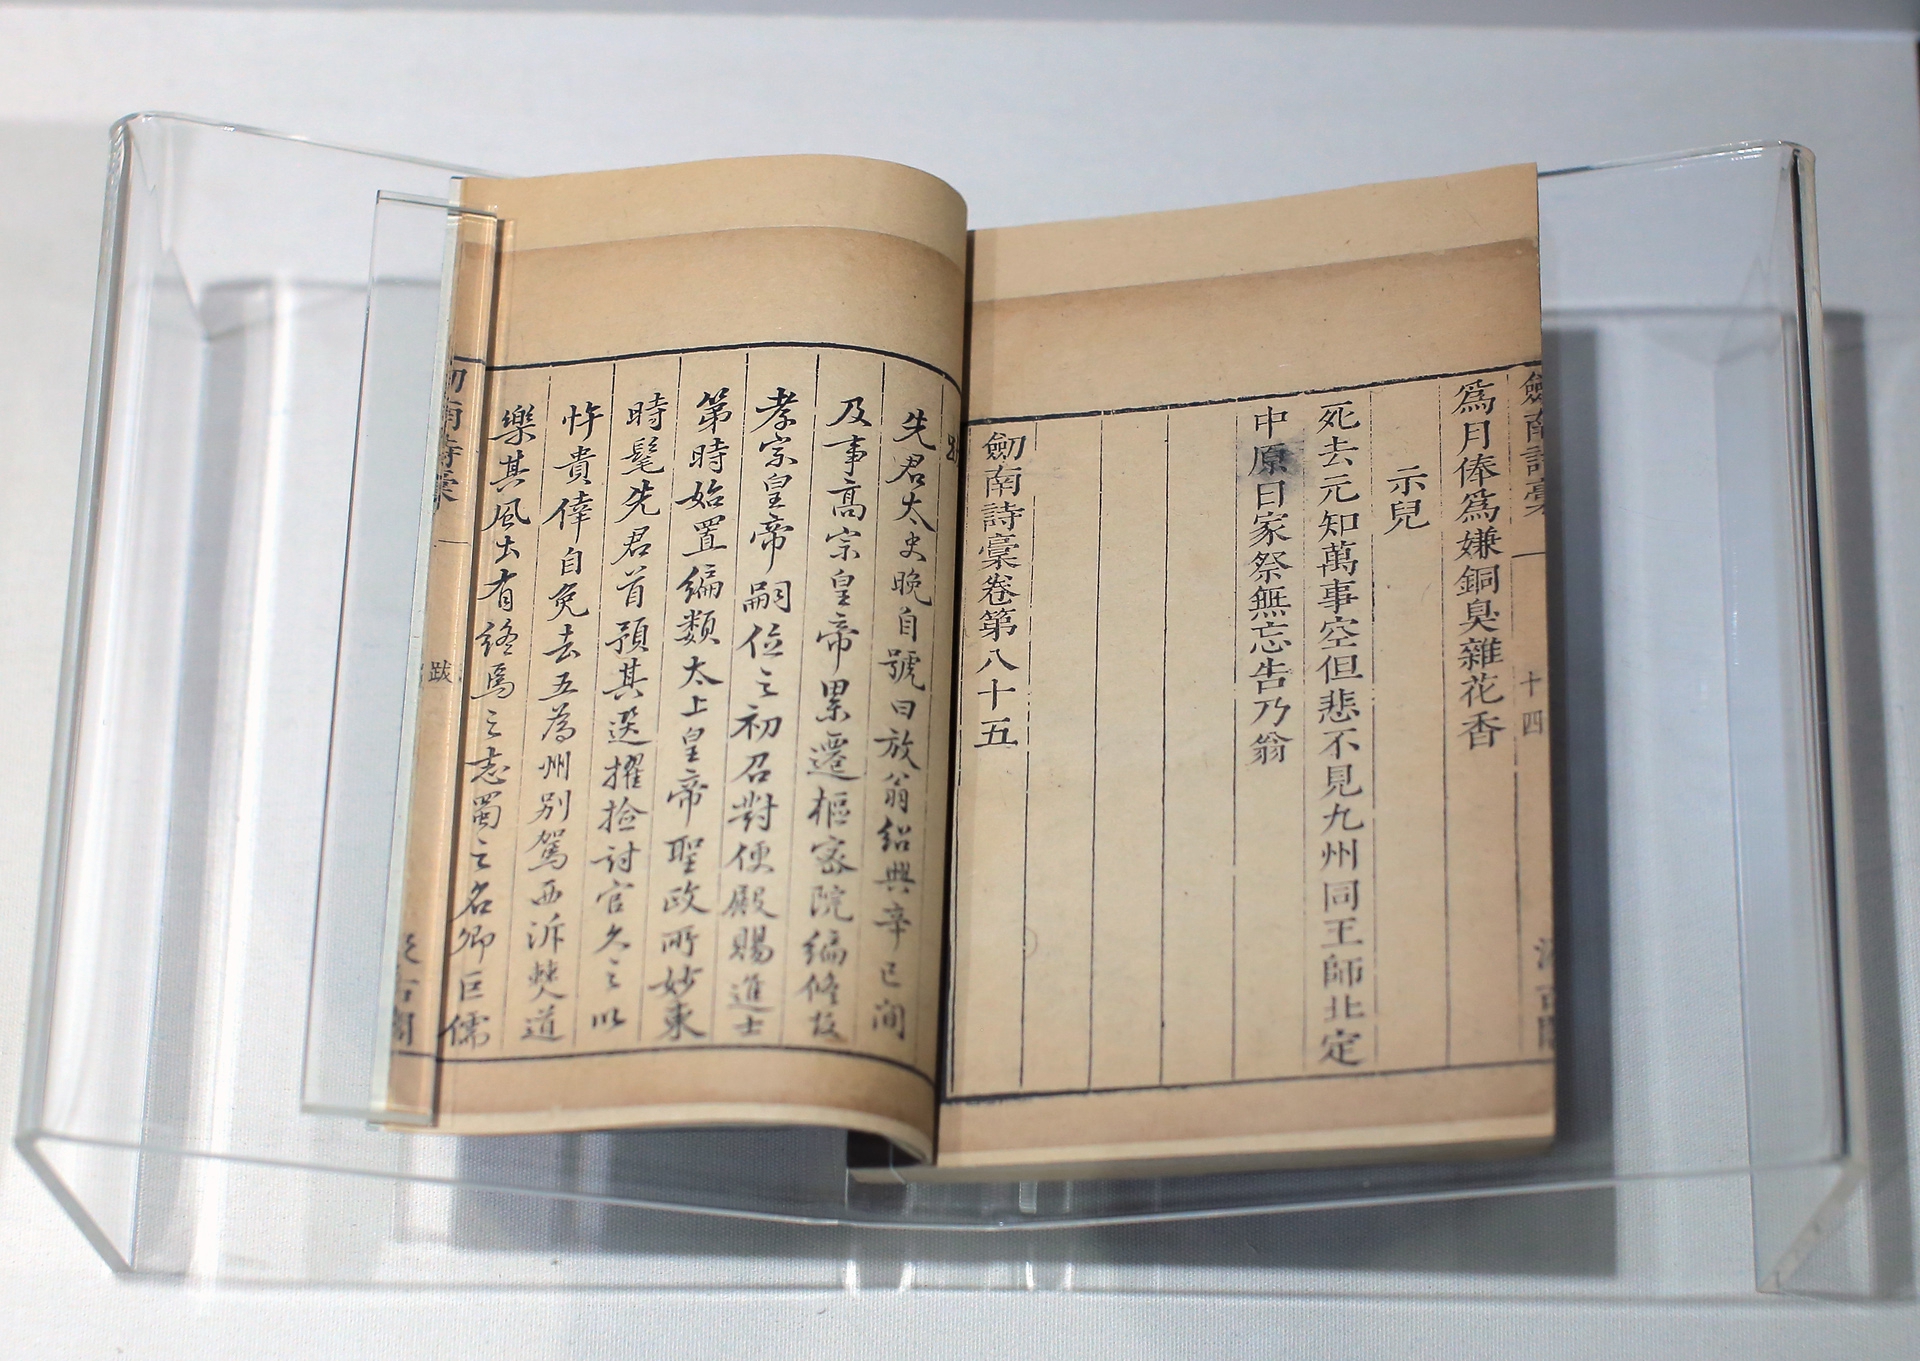 劍南詩稾 十四
爲月俸爲嫌銅臭雜花香
示兒
死去元知萬事空但悲不見九州同王師北定
中原日家祭無忘告乃翁
劒南詩稾卷第八十五
先君太史晚自號曰放翁紹興辛巳間
及事高宗皇帝累遷樞密院編修
孝宗皇帝嗣位之初召對便殿賜進士
第時始置編類太上皇帝聖政所妙柬
時髦先君首預其選擢撿討官久之以
忤貴倖自免去五為州別駕西泝僰道
樂其風土有終焉之志蜀之名卿巨儒
南詩稾 跋